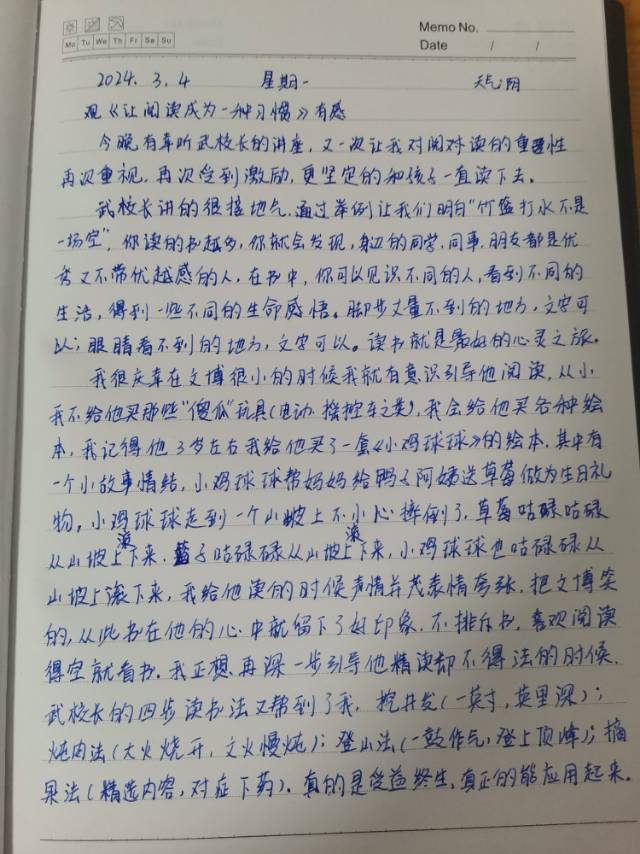 Memo No.
Mo Tu We Th Fr Sa Su
Date / /
2024.3.4 星期一 天气:阴
观《让阅读成为一种习惯》有感
今晚有幸听武校长的讲座,又一次让我对阅对读的重要性
再次重视,再次受到激励,更坚定的和孩子一直读下去。
武校长讲的很接地气,通过举例让我们明白“竹篮打水不是
一场空”,你读的书越多,你就会发现,身边的同学,同事,朋友都是优
秀又不带优越感的人,在书中,你可以见识不同的人,看到不同的
生活,得到一些不同的生命感悟。脚步丈量不到的地方,文字可
以;眼睛看不到的地方,文字可以。读书就是最好的心灵之旅。
我很庆幸在文博很小的时候我就有意识引导他阅读,从小
我不给他买那些“傻瓜”玩具(电动、摇控车之类),我会给他买各种绘
本,我记得他3岁左右我给他买了一套《小鸡球球》的绘本,其中有
一个小故事情结,小鸡球球帮妈妈给鸭子阿姨送草莓做为生日礼
物,小鸡球球走到一个山坡上不小心摔倒了,草莓咕碌咕碌
从山坡上滚下来,篮子咕碌碌从山坡上滚下来,小鸡球球也咕碌碌从
山坡上滚下来,我给他读的时候声情并茂表情夸张,把文博笑
的,从此书在他的心中就留下了好印象,不排斥书,喜欢阅读
得空就看书,我正想再深一步引导他精读却不得法的时候,
武校长的四步读书法又帮到了我,挖井发(一英寸,英里深);
炖肉法(大火烧开,文火慢炖);登山法,(一鼓作气,登上顶峰);摘
果法(精选内容,对症下药)。真的是受益终生,真正的能应用起来。